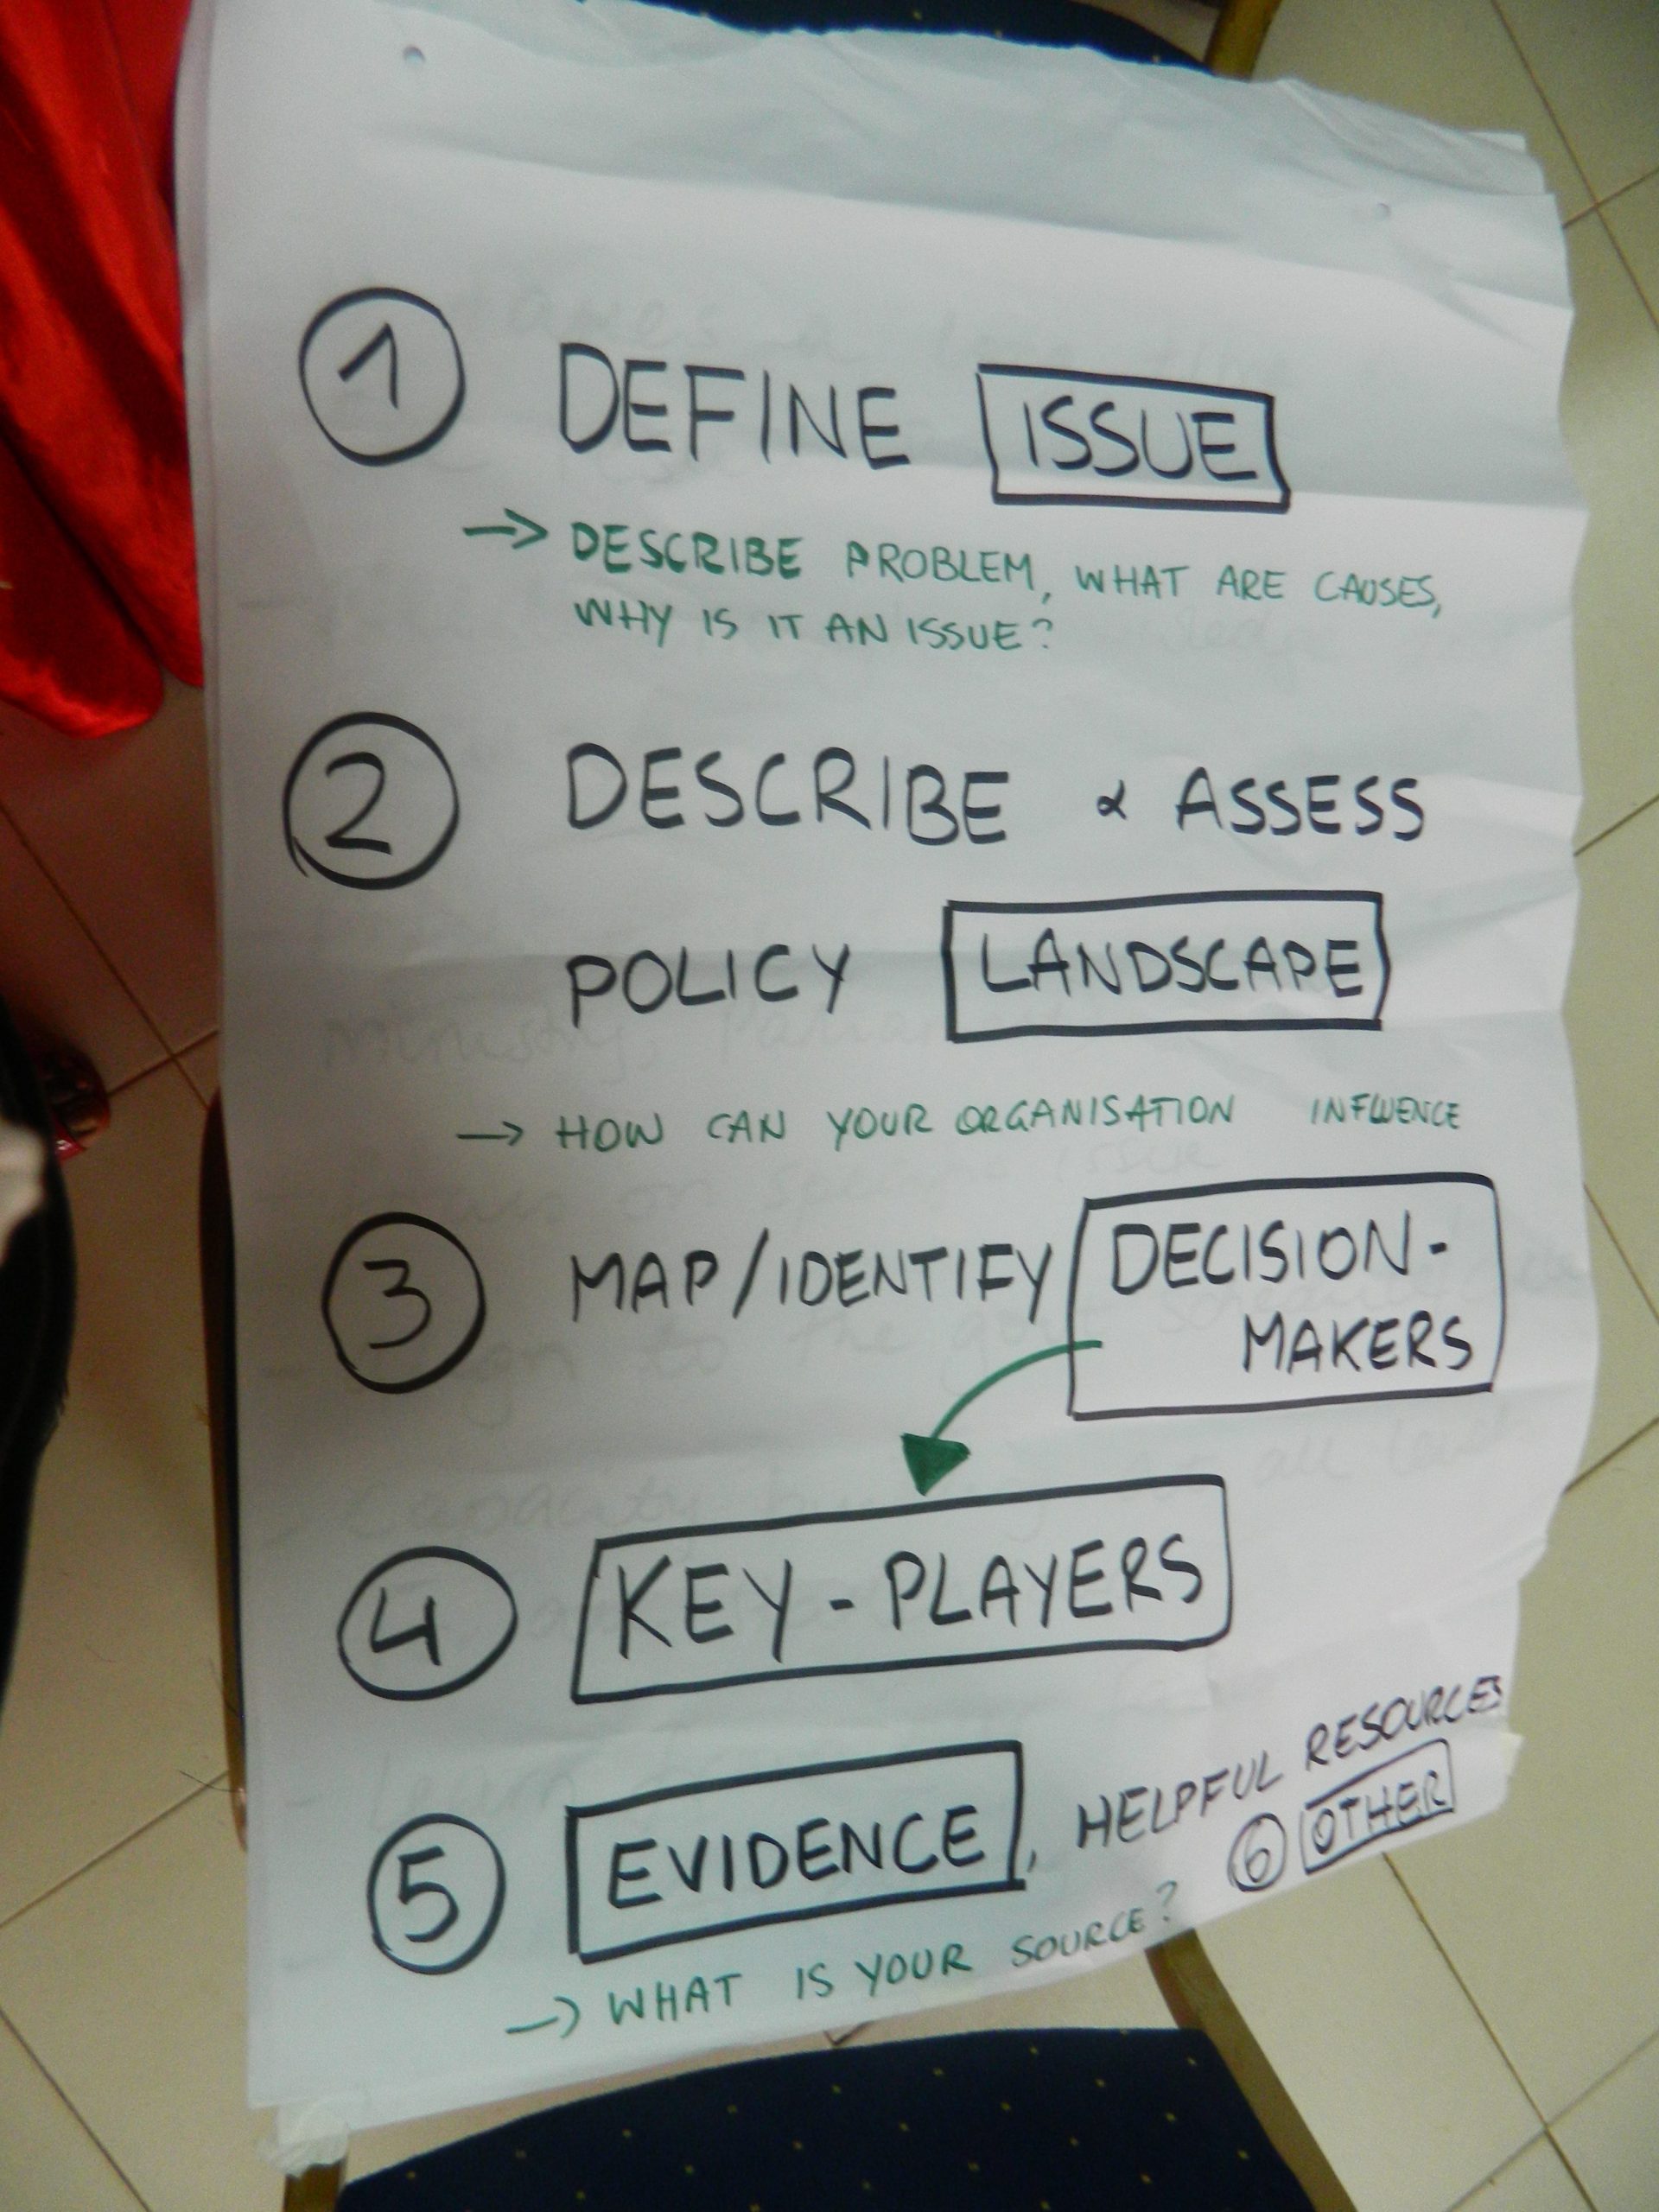 1 DEFINE ISSUE
→ DESCRIBE PROBLEM, WHAT ARE CAUSES,
WHY IS IT AN ISSUE?
2 DESCRIBE & ASSESS
POLICY LANDSCAPE
→ HOW CAN YOUR ORGANISATION INFLUENCE
3 MAP/IDENTIFY DECISION-
MAKERS
4 KEY-PLAYERS
5 EVIDENCE, HELPFUL RESOURCES
6 OTHER
→ WHAT IS YOUR SOURCE?